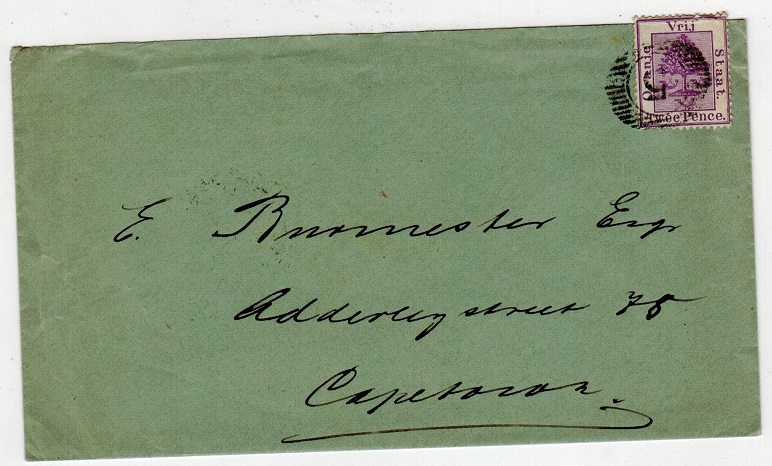 Vrij
Oranje
Staat.
Twee Pence.
E. Burmester Esqr
Adderleystreet 75
Capetown.